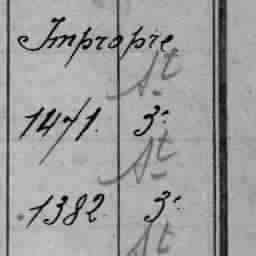 Impropre
St
1471. 3e
St
1382 3e
St